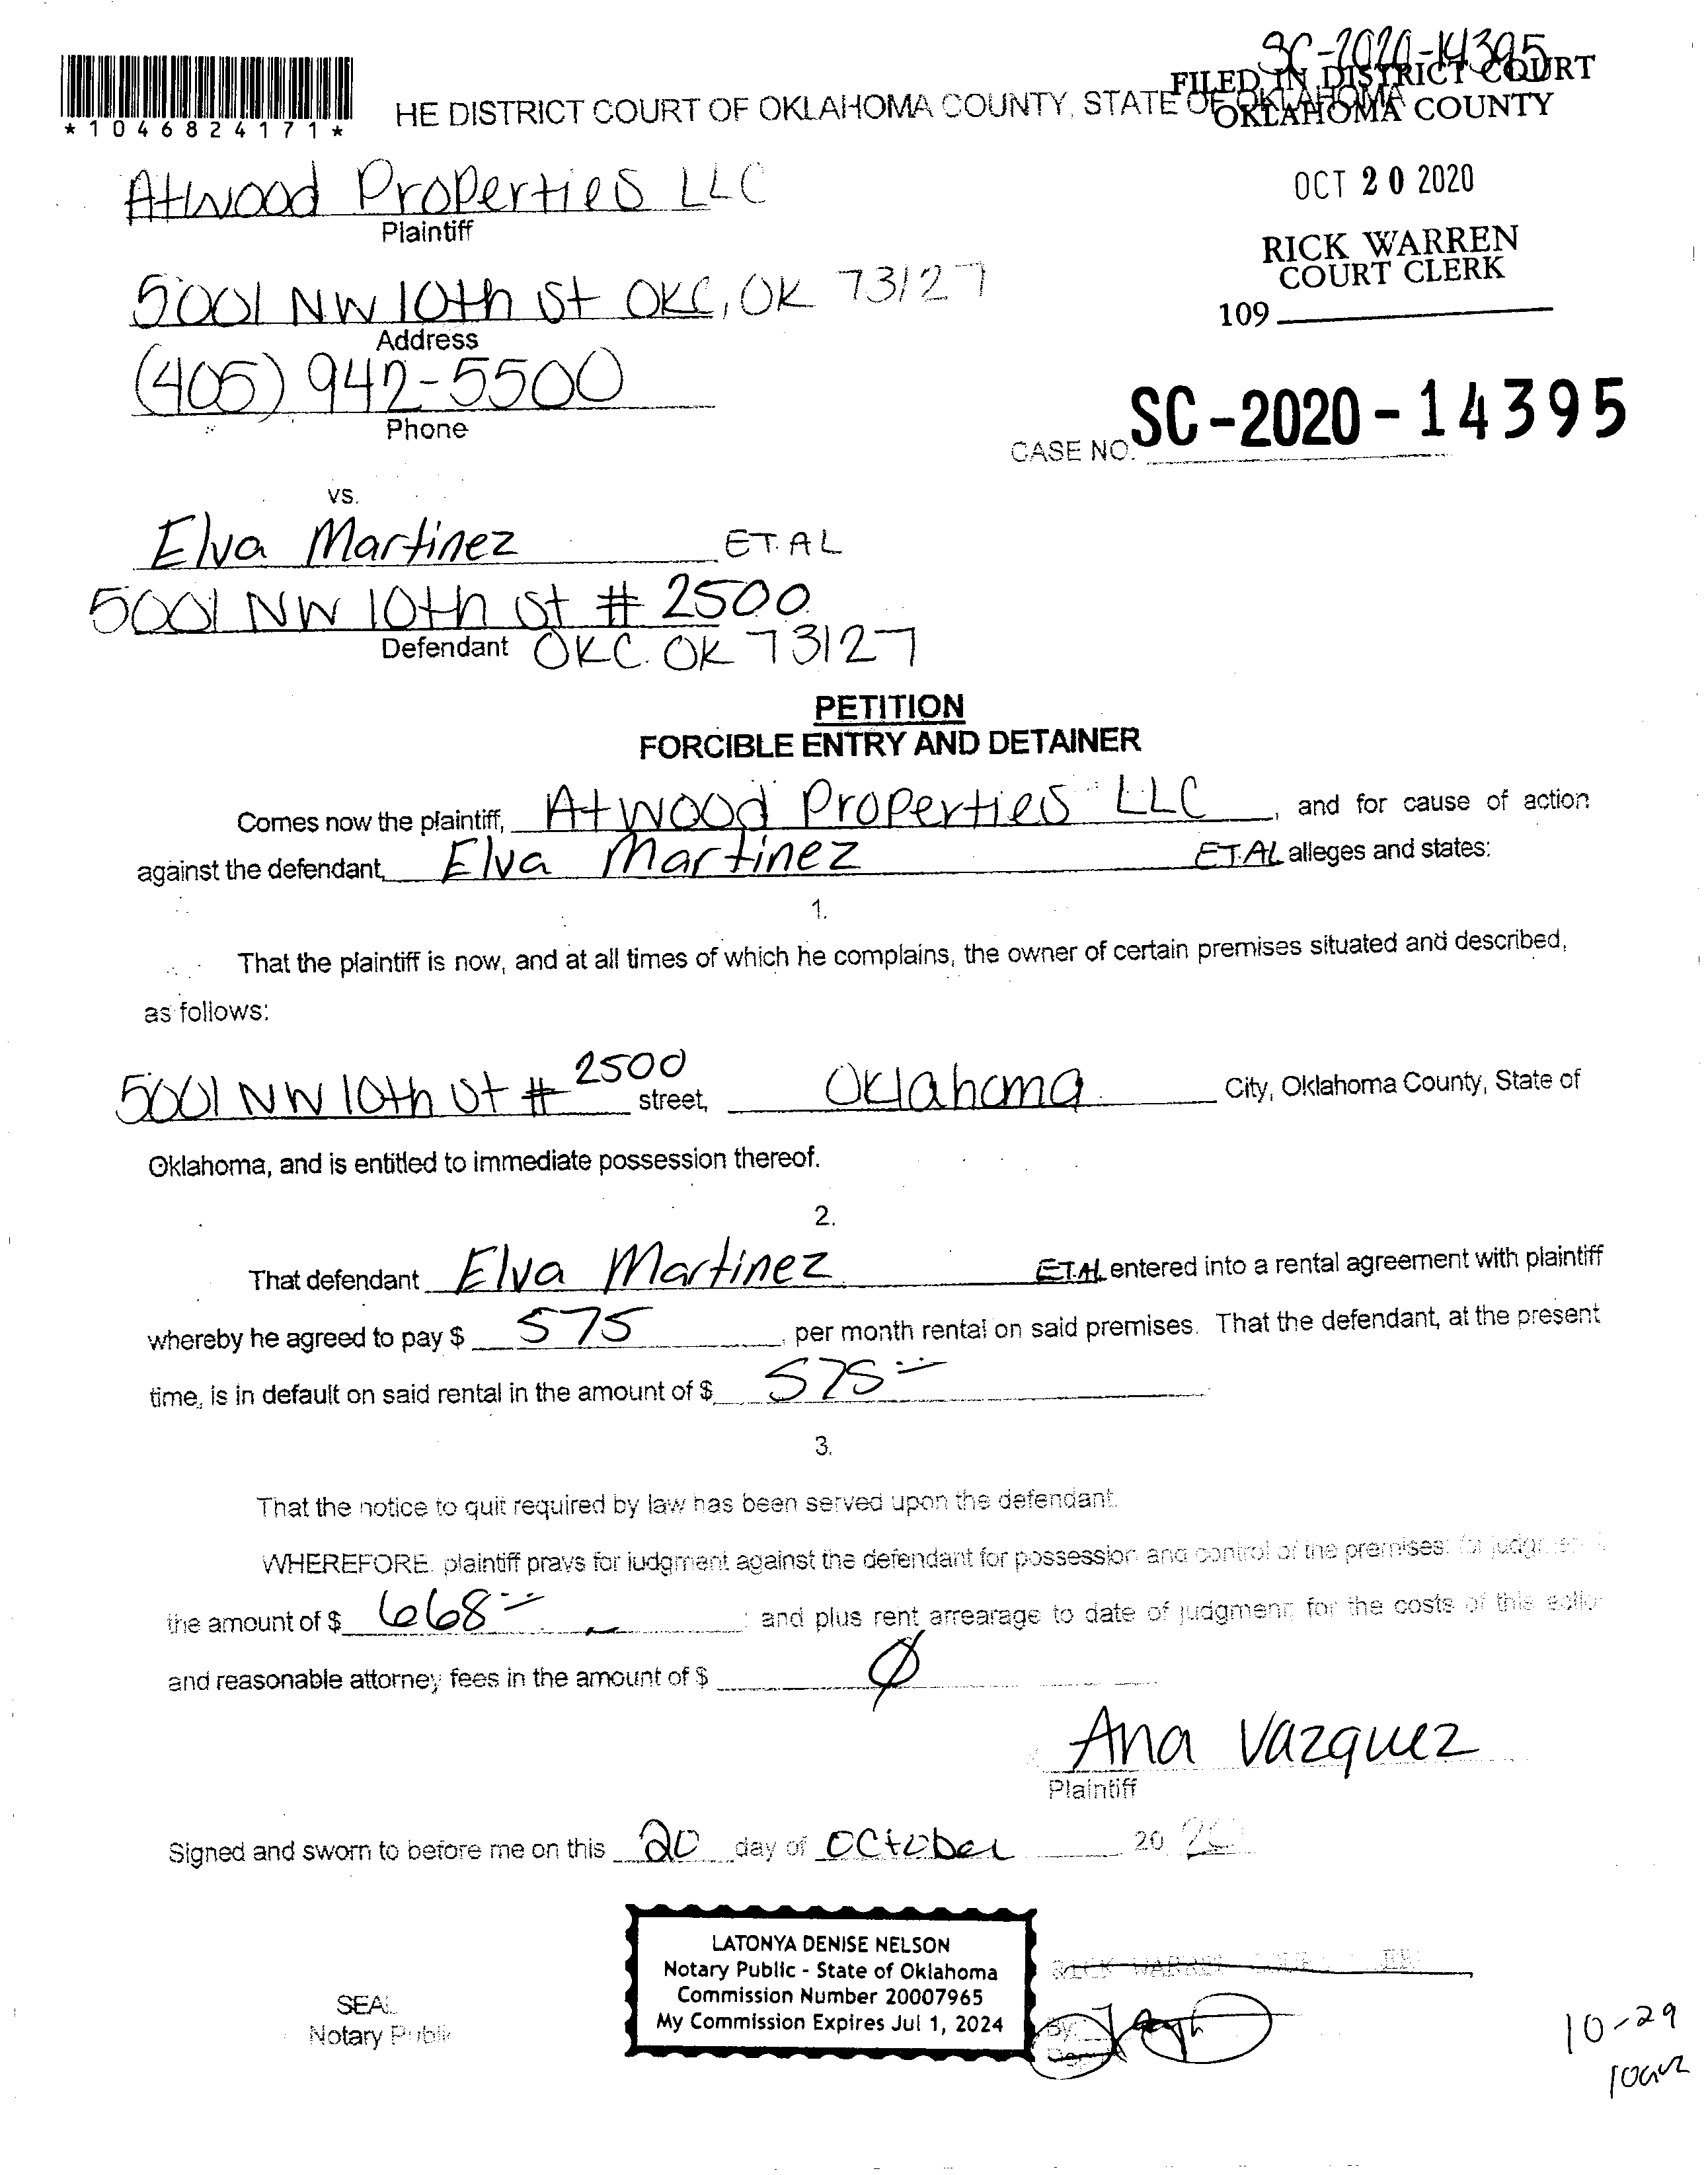 SC-2020-14395
FILED IN DISTRICT COURT
OKLAHOMA COUNTY
*1046824171*
HE DISTRICT COURT OF OKLAHOMA COUNTY, STATE OF OKLAHOMA
OCT 20 2020
RICK WARREN
COURT CLERK
109
Atwood Properties LLC
Plaintiff
5001 NW 10th St OKC, OK 73127
Address
(405) 942-5500
Phone
CASE NO. SC-2020-14395
vs.
Elva Martinez ET.AL
5001 NW 10th St # 2500
Defendant OKC. OK 73127
PETITION
FORCIBLE ENTRY AND DETAINER
Comes now the plaintiff, Atwood Properties LLC, and for cause of action
against the defendant, Elva Martinez ET.AL alleges and states:
1.
That the plaintiff is now, and at all times of which he complains, the owner of certain premises situated and described,
as follows:
5001 NW 10th St # 2500 street, Oklahoma City, Oklahoma County, State of
Oklahoma, and is entitled to immediate possession thereof.
2.
That defendant Elva Martinez ET.AL entered into a rental agreement with plaintiff
whereby he agreed to pay $ 575, per month rental on said premises. That the defendant, at the present
time, is in default on said rental in the amount of $ 575
3.
That the notice to quit required by law has been served upon the defendant.
WHEREFORE, plaintiff prays for judgment against the defendant for possession and control of the premises: for
the amount of $ 668; and plus rent arrearage to date of judgment; for the costs of this
and reasonable attorney fees in the amount of $ Ø
Ana Vazquez
Plaintiff
Signed and sworn to before me on this 20 day of October 20 20
LATONYA DENISE NELSON
Notary Public - State of Oklahoma
Commission Number 20007965
My Commission Expires Jul 1, 2024
RICK WARREN
SEAL
Notary Public
By
10-29
10am